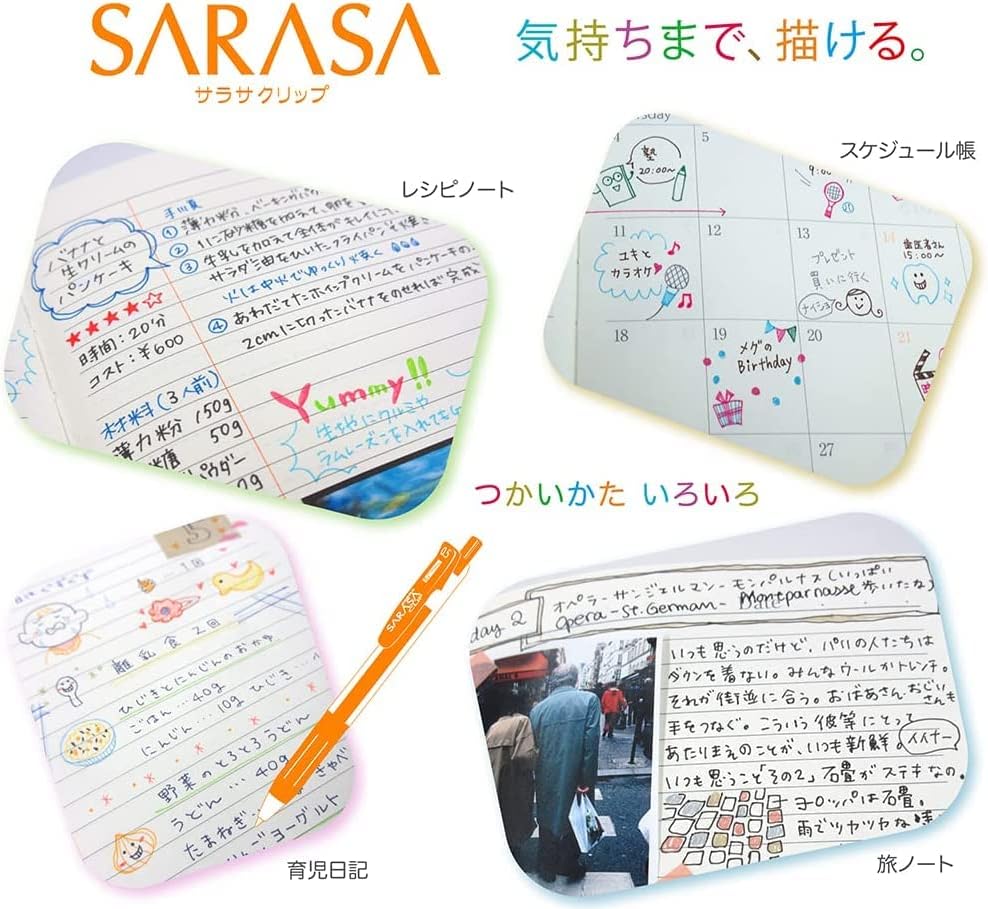 SARASA
サラサクリップ
気持ちまで、描ける。
レシピノート
バナナと
生クリームの
パンケーキ
★★★★☆
時間：20分
コスト：¥600
材料(3人前)
薄力粉 150g
50g
パウダー
手順
① 薄力粉、ベーキングパウ
②
③ 牛乳を加えて全体が
サラダ油をひいたフライパンで
火は中火でゆっくり焼く
④ あわだてたホイップクリームをパンケーキの
2cmに切ったバナナをのせれば完成
Yummy!!
生地にクルミや
ラムレーズンを入れても
スケジュール帳
4
塾
20:00〜
5
9:00〜
11
ユキと
カラオケ
12
13
プレゼント
買いに行く
ナイショ
14
歯医者さん
15:00〜
18
19
メグの
Birthday
20
21
27
つかいかた いろいろ
育児日記
15
1回
離乳食 2回
ひじきとにんじんのおかゆ
ごはん…40g ひじき
にんじん…10g
野菜のとろとろうどん
うどん…40g
たまねぎ
ヨーグルト
SARASA
旅ノート
day 2
オペラーサンジェルマンーモンパルナス(いっぱい
歩いたな)
opera-St.German- Montparnasse
Date
いつも思うのだけど、パリの人たちは
ダウンを着ない。みんなウールかトレンチ。
それが街並に合う。おばあさんおじいさんも
手をつなぐ。こういう彼等にとって
あたりまえのことが、いつも新鮮。イイナー
いつも思うこと「その2」石畳がステキなの。
ヨーロッパは石畳。
雨でツヤツヤな